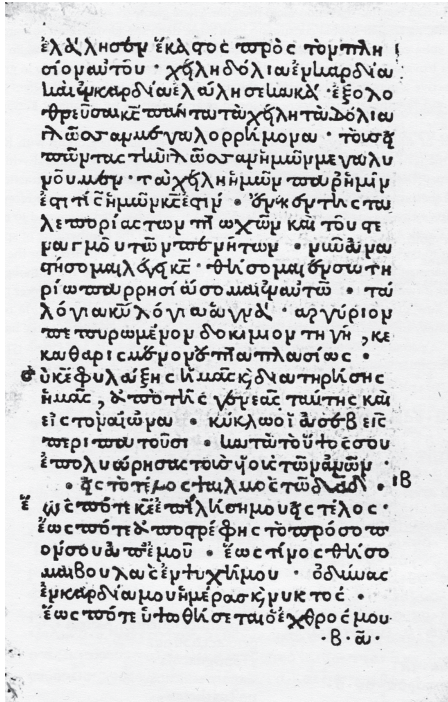 ἐλάλησεν ἕκαστος πρὸς τὸν πλη
σίον αὐτοῦ · χείλη δόλια ἐν καρδία
καὶ ἐν καρδία ἐλάλησε κακά · ἐξολο
θρεύσαι κ̅ς̅ πάντα τὰ χείλη τὰ δόλια
γλῶσσαν μεγαλορρήμονα · τοὺς
εἰπόντας τὴν γλῶσσαν ἡμῶν μεγαλυ
νοῦμεν · τὰ χείλη ἡμῶν παρ' ἡμῖν
ἐστι τίς ἡμῶν κ̅ς̅ ἐστιν · ἕνεκεν τῆς τα
λεπορίας τῶν πτωχῶν καὶ τοῦ στε
ναγμοῦ τῶν πενήτων · νῦν ἀνα
στήσομαι λέγει κ̅ς̅ · θήσομαι ἐν σωτη
ρίω παρρησιάσομαι ἐν αὐτῶ · τὰ
λόγια κ̅υ̅ λόγια ἁγνά · ἀργύριον
πεπυρωμένον δοκίμιον τῆ γῆ, κε
καθαρισμένον ἑπταπλασίως ·
σὺ κ̅ε̅ φυλάξης ἡμᾶς κ, διατηρήσης
ἡμᾶς, ἀπὸ τῆς γενεᾶς ταύτης καὶ
εἰς τὸν αἰῶνα · κύκλω οἱ ἀσεβεῖς
περιπατοῦσι · κατὰ τὸ ὕψος σου
ἐπολυώρησας τοὺς υἱοὺς τῶν ἀν̅ω̅ν̅ ·
· εἰς τὸ τέλος ψαλμὸς τῶ δα̅δ̅ · ΙΒ
ἕως πότε κ̅ε̅ ἐπιλήση μου εἰς τέλος ·
ἕως πότε ἀποστρέφης τὸ πρόσωπ
όν σου ἀπ' ἐμοῦ · ἕως τίνος θήσο
μαι βουλὰς ἐν ψυχῆ μου · ὀδύνας
ἐν καρδία μου ἡμέρας κ, νυκτός ·
ἕως πότε ὑψωθήσεται ὁ ἐχθρός μου
· β · α̅ ·